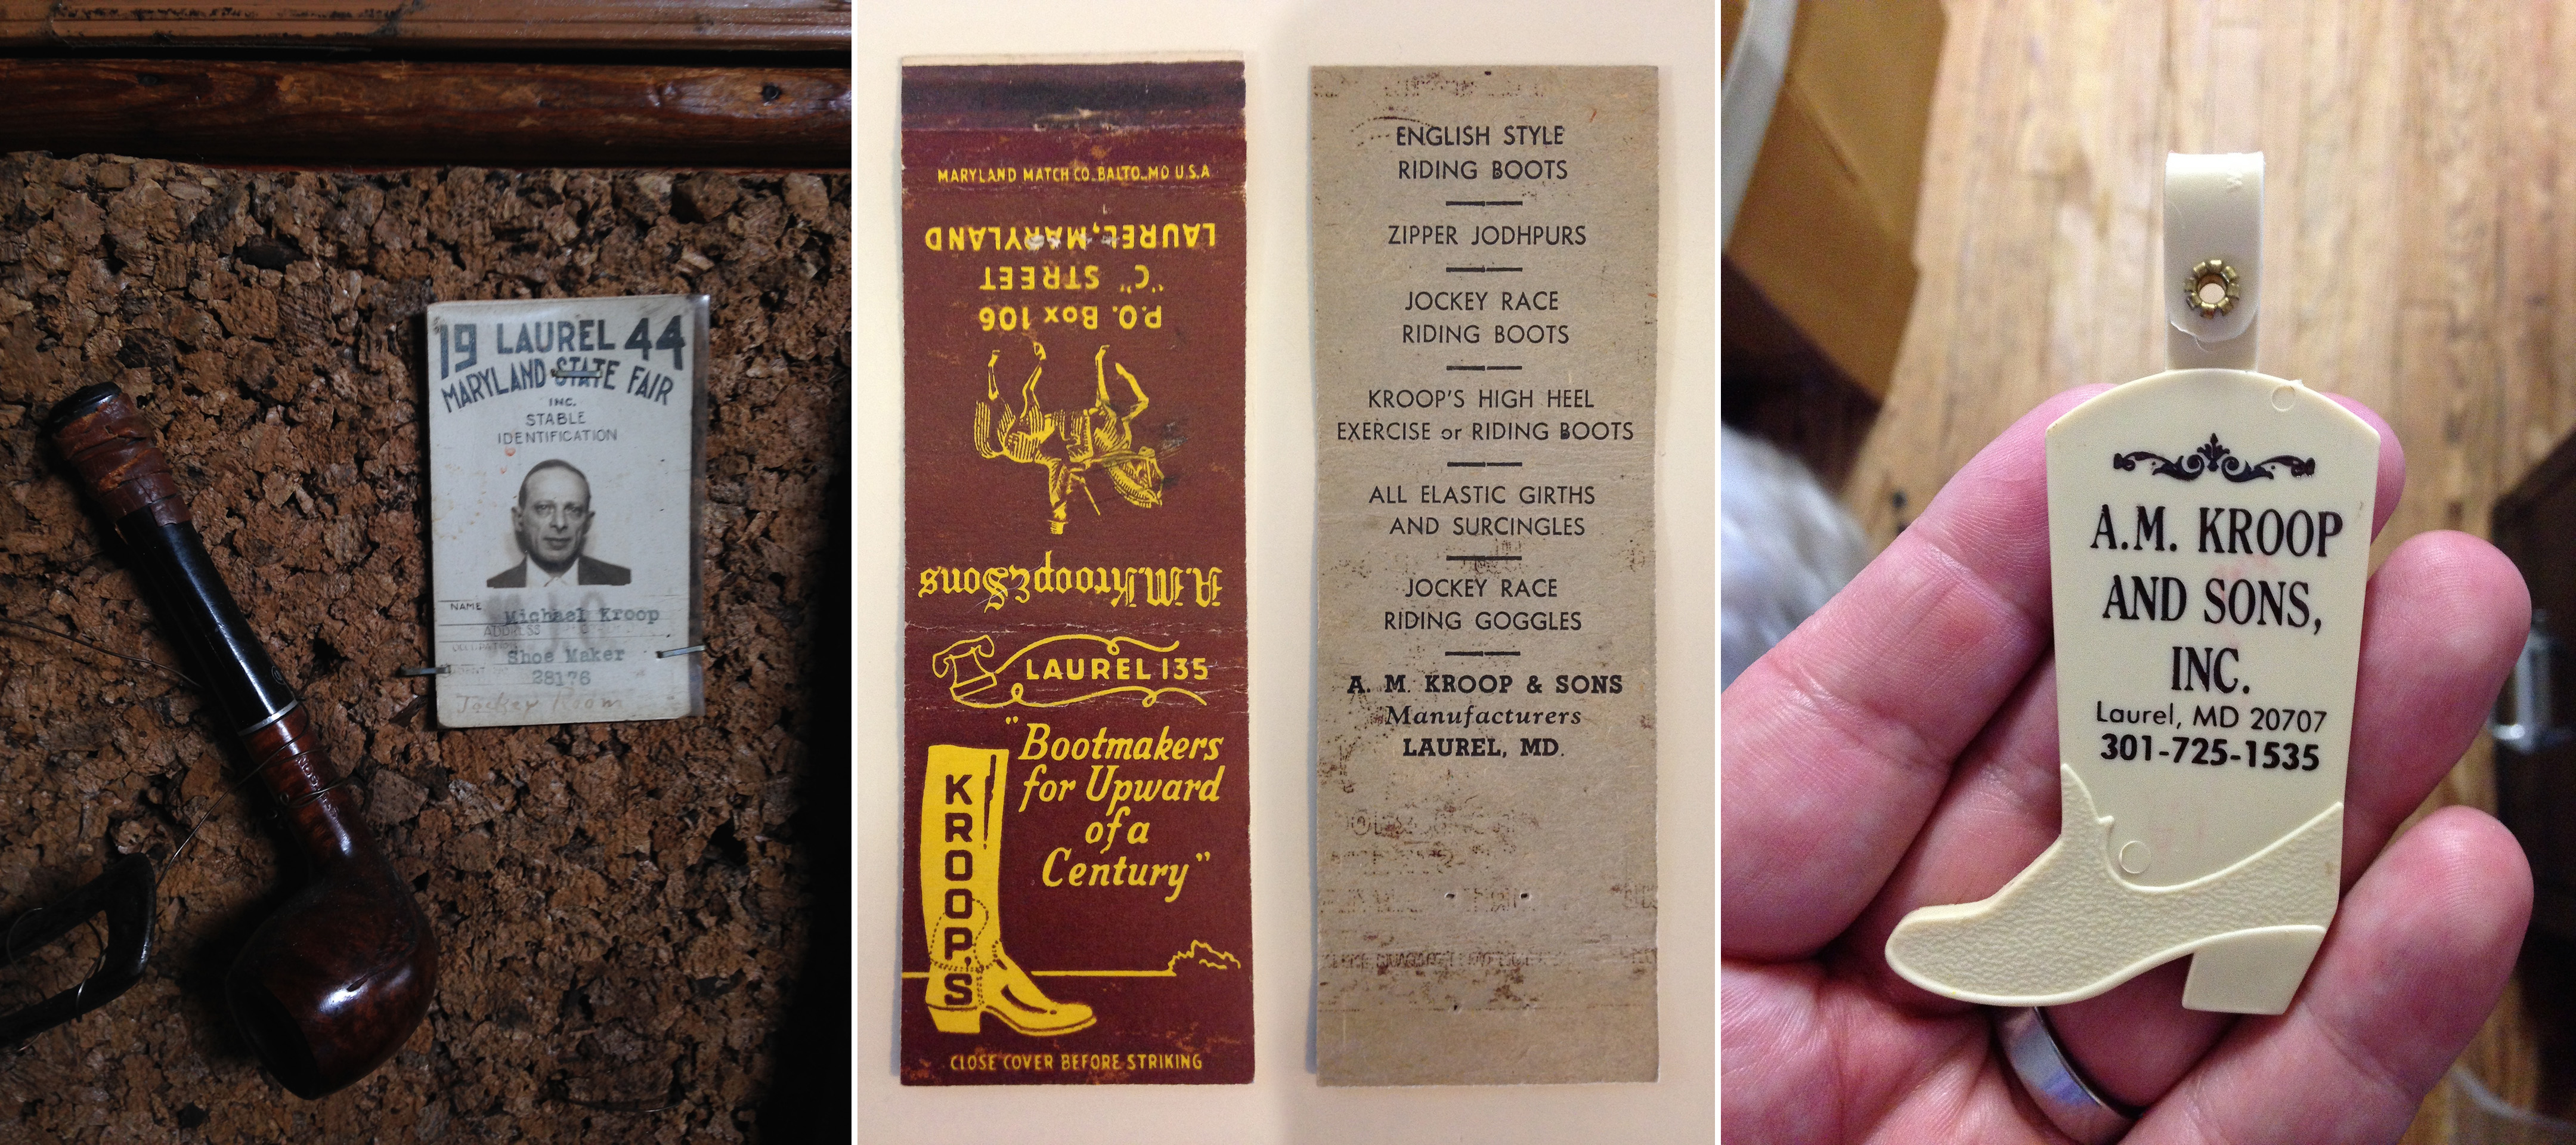 19 LAUREL 44
MARYLAND STATE FAIR
INC.
STABLE
IDENTIFICATION
NAME Michael Kroop
ADDRESS
Shoe Maker
28176
Jockey Room
MARYLAND MATCH CO. BALTO. MD U.S.A.
A.M. Kroop & Sons
P.O. Box 106
"C" STREET
LAUREL, MARYLAND
LAUREL 135
"Bootmakers
for Upward
of a
Century"
KROOP'S
CLOSE COVER BEFORE STRIKING
ENGLISH STYLE
RIDING BOOTS
ZIPPER JODHPURS
JOCKEY RACE
RIDING BOOTS
KROOP'S HIGH HEEL
EXERCISE or RIDING BOOTS
ALL ELASTIC GIRTHS
AND SURCINGLES
JOCKEY RACE
RIDING GOGGLES
A. M. KROOP & SONS
Manufacturers
LAUREL, MD.
A.M. KROOP
AND SONS,
INC.
Laurel, MD 20707
301-725-1535